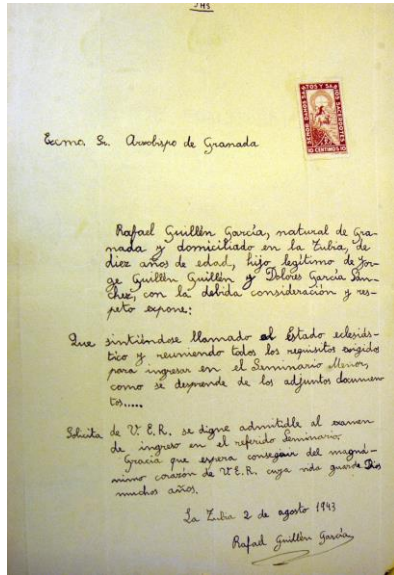 JHS
SEÑOR DANOS SANTOS Y SABIOS SACERDOTES
10 CENTIMOS 10
Excmo. Sr. Arzobispo de Granada
Rafael Guillén García, natural de Gra-
nada y domiciliado en la Zubia, de
diez años de edad, hijo legítimo de Jor-
ge Guillén Guillén y Dolores García Sán-
chez, con la debida consideración y res-
peto expone:
Que sintiéndose llamado al Estado eclesiás-
tico y reuniendo todos los requisitos exigidos
para ingresar en el Seminario Menor,
como se desprende de los adjuntos documen
tos.....
Solicita de V. E. R. se digne admitirle al examen
de ingreso en el referido Seminario.
Gracia que espera conseguir del magná-
nimo corazón de V.E.R. cuya vida guarde Dios
muchos años.
La Zubia 2 de agosto 1943
Rafael Guillén García